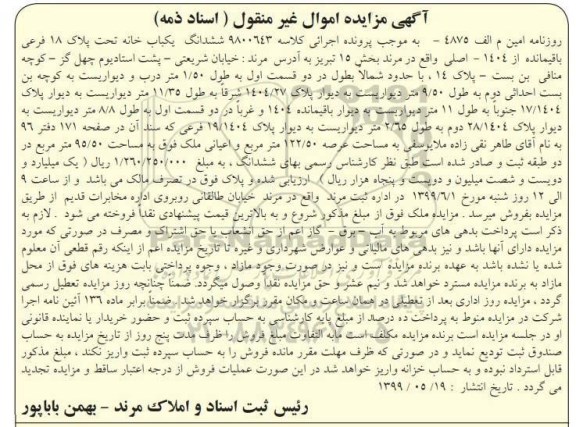 آگهی مزایده اموال غیر منقول ( اسناد ذمه)
روزنامه امین م الف ۴۸۷۵ - به موجب پرونده اجرائی کلاسه ۹۸۰۰۶۴۳ ششدانگ یکباب خانه تحت پلاک ۱۸ فرعی
باقیمانده از ۱۴۰۴ - اصلی واقع در مرند بخش ۱۵ تبریز به آدرس مرند : خیابان شریعتی – پشت استادیوم چهل گز – کوچه
منافی بن بست – پلاک ۱۴ ، با حدود شمالا بطول در دو قسمت اول به طول ۱/۵۰ متر درب و دیواریست به کوچه بن
بست احداثی دوم به طول ۹/۵۰ متر دیواریست به دیوار پلاک ۱۴۰۴/۲۷ شرقا به طول ۱۱/۳۵ متر دیواریست به دیوار پلاک
۱۷/۱۴۰۴ جنوباً به طول ۱۱ متر دیواریست به دیوار باقیمانده ۱۴۰۴ و غرباً در دو قسمت اول به طول ۸/۸ متر دیواریست به
دیوار پلاک ۲۸/۱۴۰۴ دوم به طول ۲/۶۵ متر دیواریست به دیوار پلاک ۱۹/۱۴۰۴ فرعی که سند آن در صفحه ۱۷۱ دفتر ۹۶
به نام آقای طاهر نقی زاده ملایوسفی به مساحت عرصه ۱۲۲/۵۰ متر مربع و اعیانی ملک فوق به مساحت ۹۵/۵۰ متر مربع در
دو طبقه ثبت و صادر شده است طبق نظر کارشناس رسمی بهای ششدانگ ، به مبلغ ۱/۲۶۰/۲۵۰/۰۰۰ ریال ( یک میلیارد و
دویست و شصت میلیون و دویست و پنجاه هزار ریال ) ارزیابی شده و پلاک فوق در تصرف مالک می باشد و از ساعت ۹
الی ۱۲ روز شنبه مورخ ۱۳۹۹/۶/۱ در اداره ثبت مرند واقع در مرند خیابان طالقانی روبروی اداره مخابرات قدیم از طریق
مزایده بفروش میرسد . مزایده ملک فوق از مبلغ مذکور شروع و به بالاترین قیمت پیشنهادی نقداً فروخته می شود . لازم به
ذکر است پرداخت بدهی های مربوط به آب – برق – گاز اعم از حق انشعاب یا حق اشتراک و مصرف در صورتی که مورد
مزایده دارای آنها باشد و نیز بدهی های مالیاتی و عوارض شهرداری و غیره تا تاریخ مزایده اعم از اینکه رقم قطعی آن معلوم
شده یا نشده باشد به عهده برنده مزایده است و نیز در صورت وجود مازاد ، وجوه پرداختی بابت هزینه های فوق از محل
مازاد به برنده مزایده مسترد خواهد شد و نیم عشر و حق مزایده نقداً وصول میگردد. ضمناً چنانچه روز مزایده تعطیل رسمی
گردد ، مزایده روز اداری بعد از تعطیلی در همان ساعت و مکان مقرر برگزار خواهد شد . ضمنا برابر ماده ۱۳۶ آئین نامه اجرا
شرکت در مزایده منوط به پرداخت ده درصد از مبلغ پایه کارشناسی به حساب سپرده ثبت و حضور خریدار یا نماینده قانونی
او در جلسه مزایده است برنده مزایده مکلف است مابه التفاوت مبلغ فروش را ظرف مدت پنج روز از تاریخ مزایده به حساب
صندوق ثبت تودیع نماید و در صورتی که ظرف مهلت مقرر مانده فروش را به حساب سپرده ثبت واریز نکند ، مبلغ مذکور
قابل استرداد نبوده و به حساب خزانه واریز خواهد شد در این صورت عملیات فروش از درجه اعتبار ساقط و مزایده تجدید
می گردد . تاریخ انتشار : ۱۹/ ۰۵/ ۱۳۹۹
رئیس ثبت اسناد و املاک مرند – بهمن باباپور